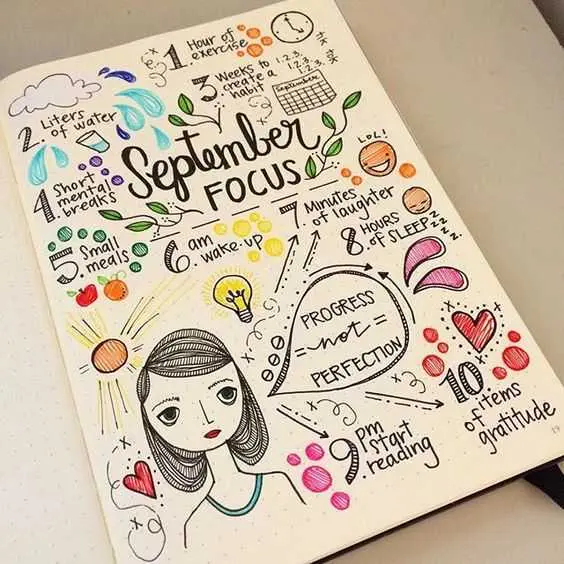 1 Hour of
exercise
1.2.3.
1.2.3.
1.2.3.
2. Liters
of water
3 Weeks to
create a
habit
September
September
FOCUS
4 Short
mental
breaks
LOL!
5. Small
meals
6 am
wake-up
7 Minutes
of laughter
8 HOURS
OF SLEEP
zzzz
PROGRESS
=not=
PERFECTION
9. pm
start
reading
10 items
of gratitude